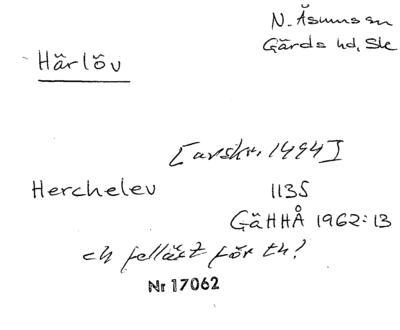 N. Åsum sn
Gärds hd, Sk
Härlöv
[avskr. 1494]
Herchelev 1135
GäHHÅ 1962:13
ch felläst för th?
Nr 17062